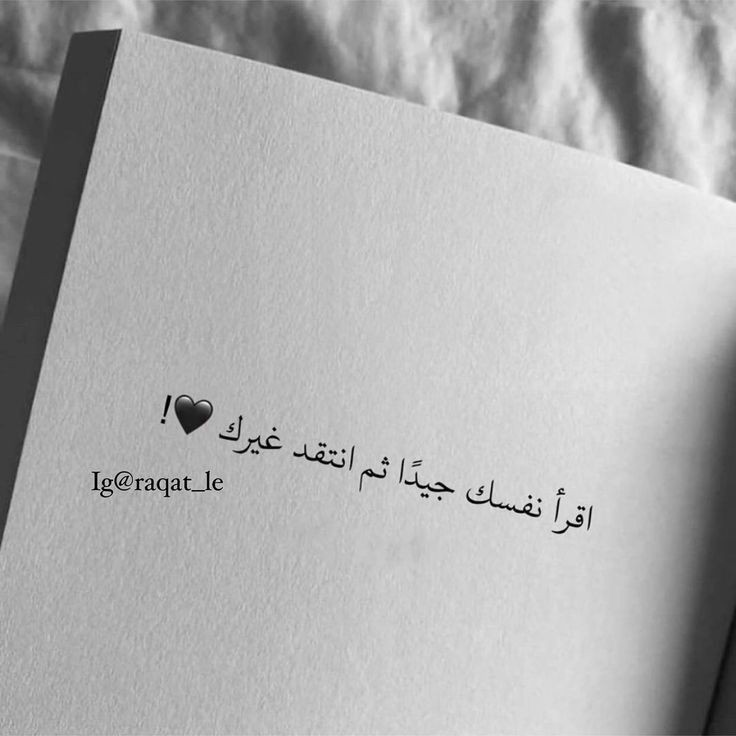 اقرأ نفسك جيدًا ثم انتقد غيرك 🖤!
Ig@raqat_le